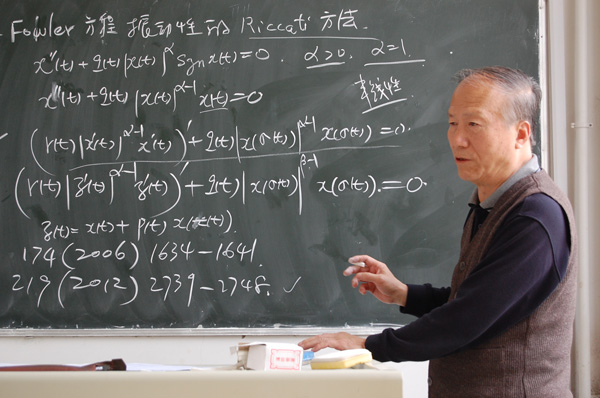 Fowler 方程 振动性的 Riccati 方法.
x''(t) + q(t)|x(t)|^α sgn x(t) = 0. α>0. α=1.
x''(t) + q(t)|x(t)|^{α-1} x(t) = 0 半线性
(r(t)|x'(t)|^{α-1} x'(t))' + q(t)|x(σ(t))|^{α-1} x(σ(t)) = 0.
(r(t)|z'(t)|^{α-1} z'(t))' + q(t)|x(σ(t))|^{β-1} x(σ(t)) = 0.
z(t) = x(t) + p(t) x(τ(t)).
174 (2006) 1634-1641.
219 (2012) 2739-2748. ✓